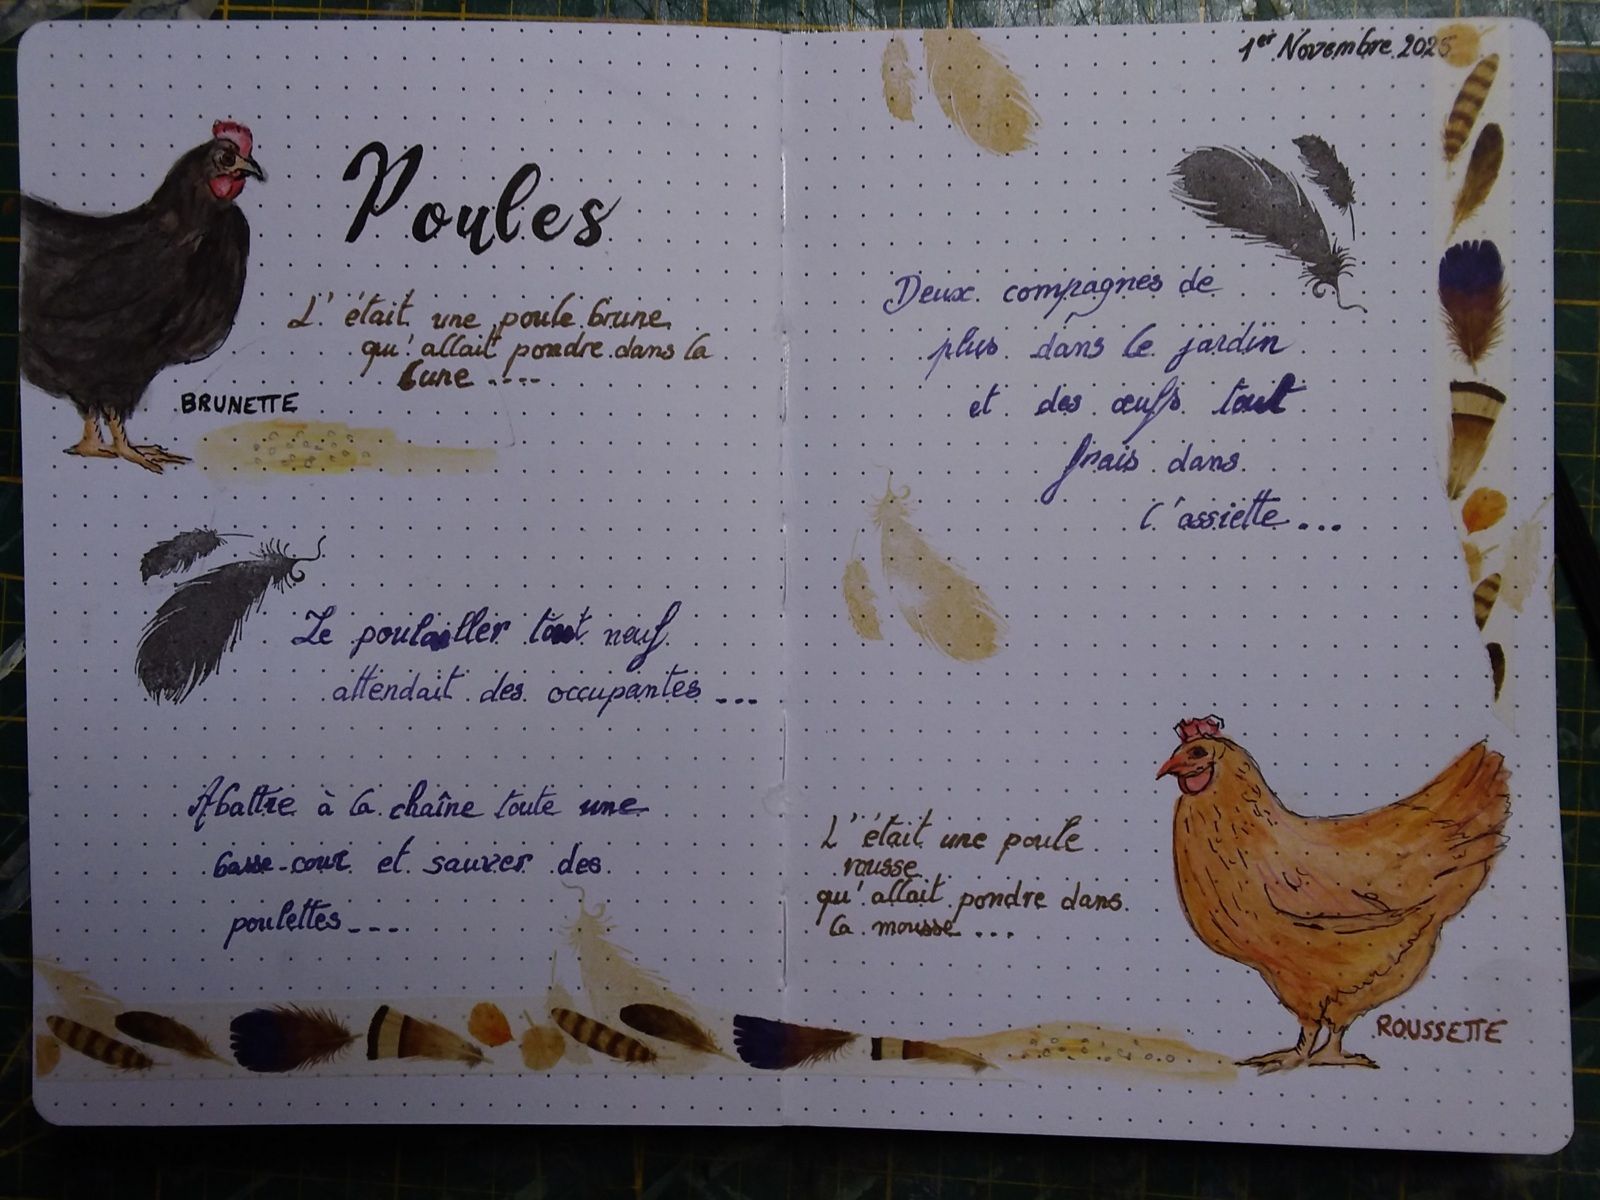 Poules
L'était une poule brune
qu'allait pondre dans la
lune ....
BRUNETTE
Le poulailler tout neuf
attendait des occupantes ...
Abattre à la chaîne toute une
basse-cour et sauver des
poulettes....
1er Novembre 2025
Deux compagnes de
plus dans le jardin
et des œufs tout
frais dans
l'assiette...
L'était une poule
rousse
qu'allait pondre dans
la mousse ...
ROUSSETTE